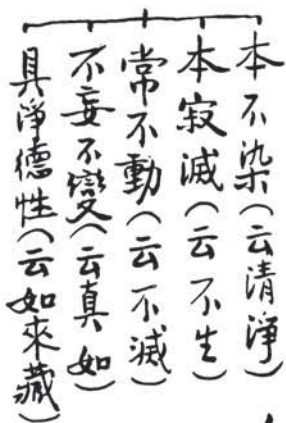 本不染（云清淨）
本寂滅（云不生）
常不動（云不滅）
不妄不變（云真如）
具淨德性（云如來藏）